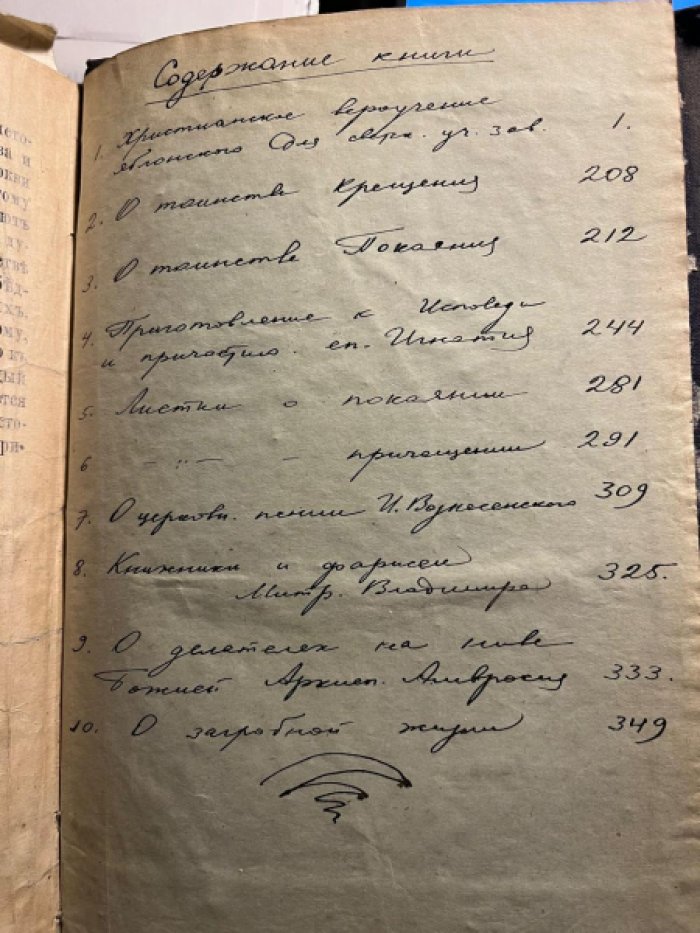 Содержание книги
1. Христианское вероучение
Яблонского для сверх. уч. зав. 1.
2. О таинстве Крещения 208
3. О таинстве Покаяния 212
4. Приготовление к Исповеди
и причастию. еп. Игнатия 244
5. Листки о покаянии 281
6 – „ – – причащении 291
7. О церковн. пении И. Вознесенского 309
8. Книжники и фарисеи
Митр. Владимира 325.
9. О делателех на ниве
Божией Архиеп. Амвросия 333.
10. О загробной жизни 349
ето-
ва и
ому
ютъ
ду-
бѣд-
ихъ.
ому,
о къ
дый
ются
ето-
ри-